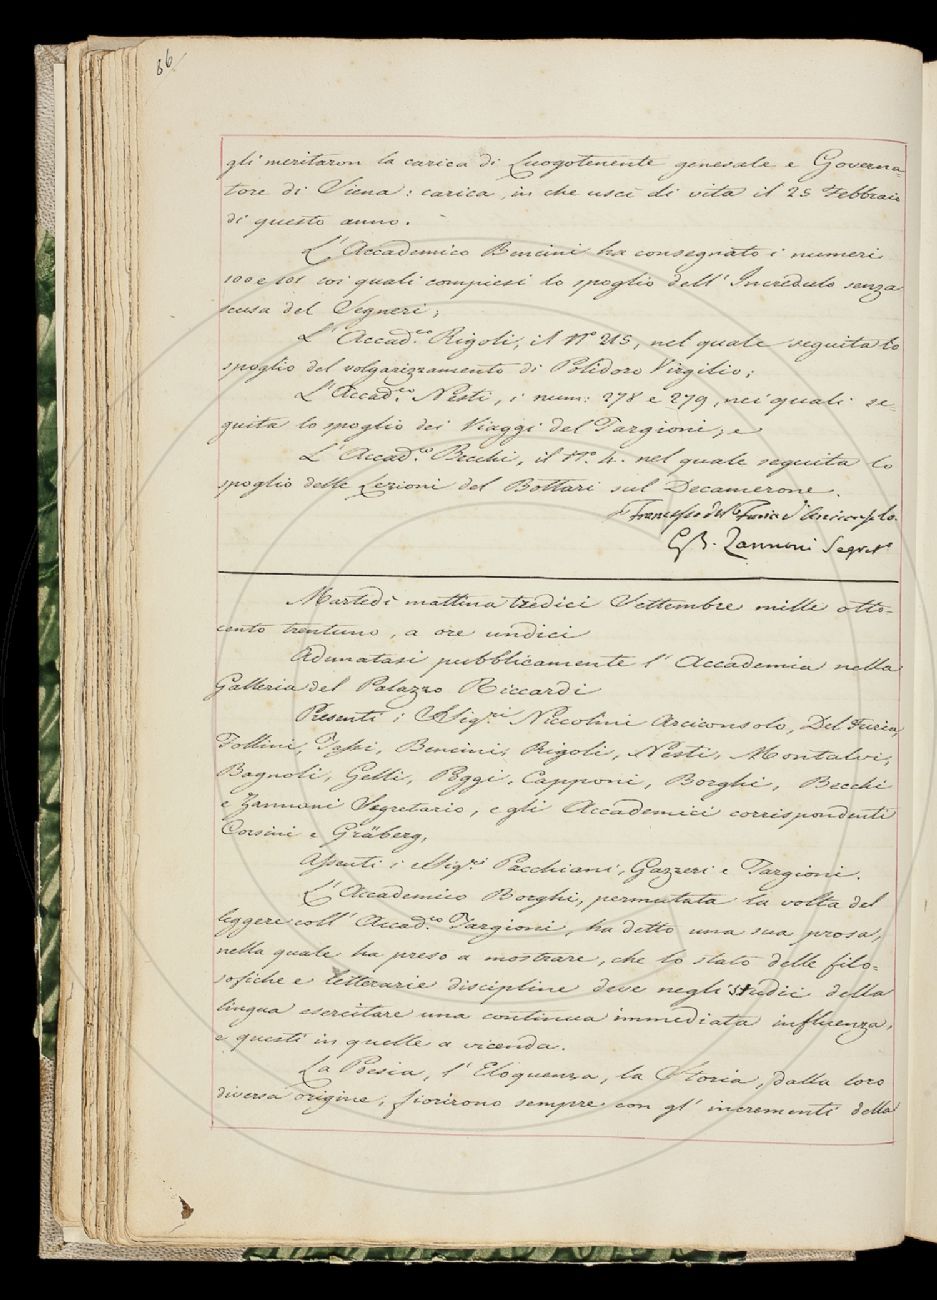 86/
gli meritaron la carica di Luogotenente generale e Governa-
tore di Siena: carica, in che uscì di vita il 25 Febbraio
di questo anno.
L'Accademico Bencini ha consegnato i numeri
100 e 101 coi quali compiesi lo spoglio dell'Incredulo senza
scusa del Segneri;
L'Accad.co Rigoli, il N.o 215, nel quale seguita lo
spoglio del volgarizzamento di Polidoro Virgilio;
L'Accad.co Nesti, i num: 278 e 279, nei quali se-
guita lo spoglio dei Viaggi del Targioni; e
L'Accad.co Becchi, il N.o 4. nel quale seguita lo
spoglio delle Lezioni del Bottari sul Decamerone.
Francesco del Furia
G.B. Zannoni Segret.o
Martedì mattina tredici Settembre mille otto-
cento trentuno, a ore undici
Adunatasi pubblicamente l'Accademia nella
Galleria del Palazzo Riccardi
Presenti i SSig.ri Niccolini Arciconsolo, Del Furia,
Follini, Tassi, Bencini, Rigoli, Nesti, Montalvi,
Bagnoli, Gelli, Poggi, Capponi, Borghi, Becchi
e Zannoni Segretario, e gli Accademici corrispondenti
Corsini e Gräberg,
Assenti i SSig.ri Pacchiani, Gazzeri e Targioni.
L'Accademico Borghi, permutata la volta del
leggere coll'Accad.co Targioni, ha detto una sua prosa,
nella quale ha preso a mostrare, che lo stato delle filo-
sofiche e letterarie discipline deve negli studii della
lingua esercitare una continua immediata influenza,
e questi in quelle a vicenda.
La Poesia, l'Eloquenza, la Storia, dalla loro
diversa origine, fiorirono sempre con gl'incrementi della